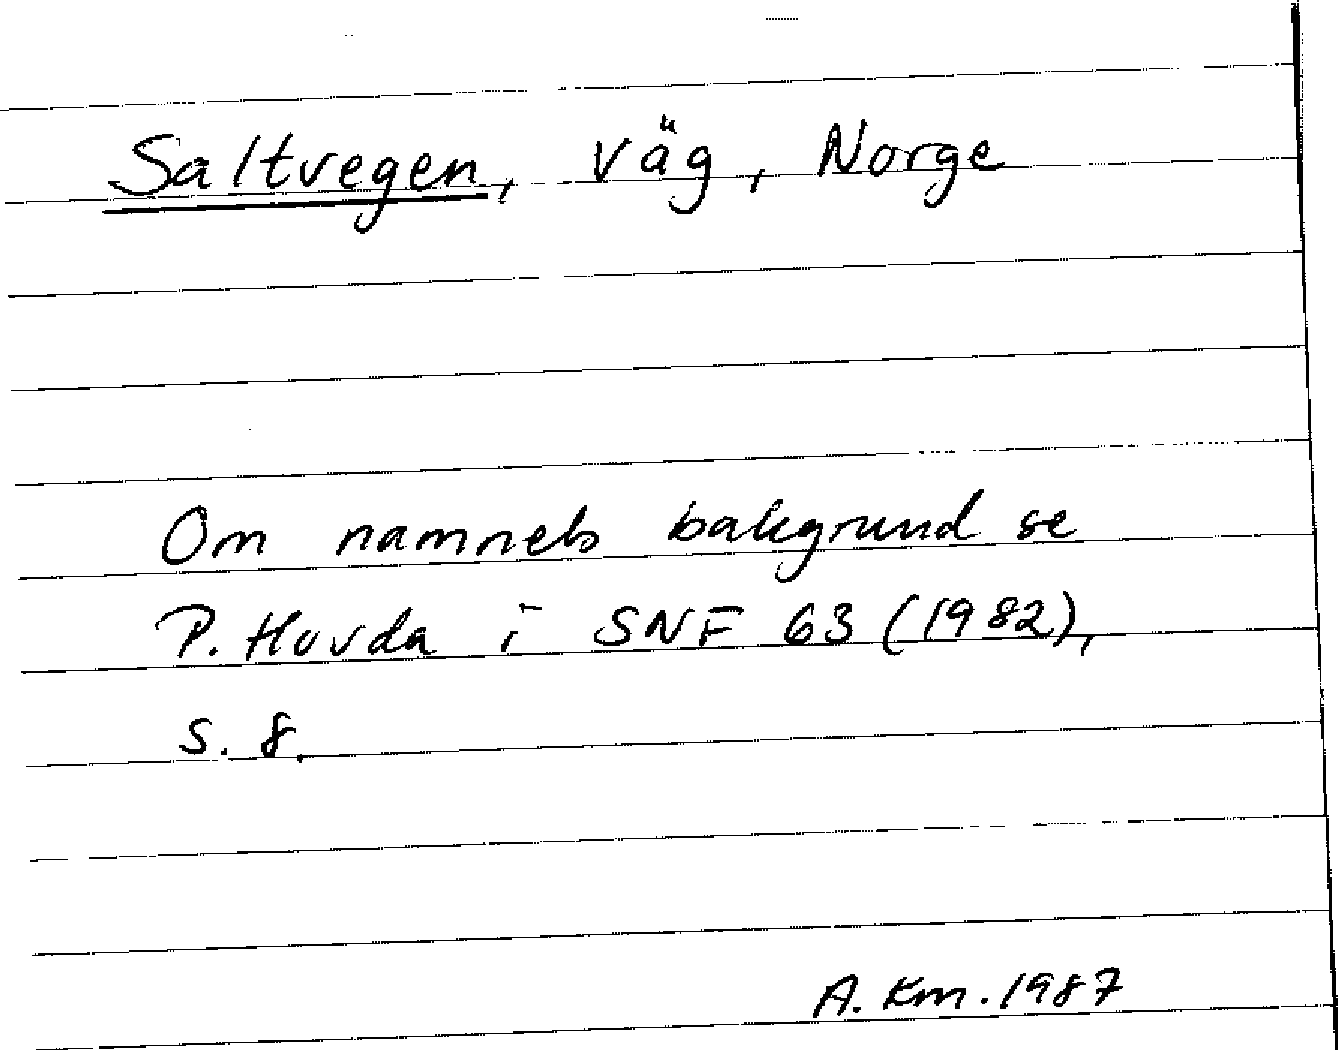 Saltvegen, väg, Norge
Om namnets bakgrund se
P. Hovda i SNF 63 (1982),
s. 8.
A. Km. 1987